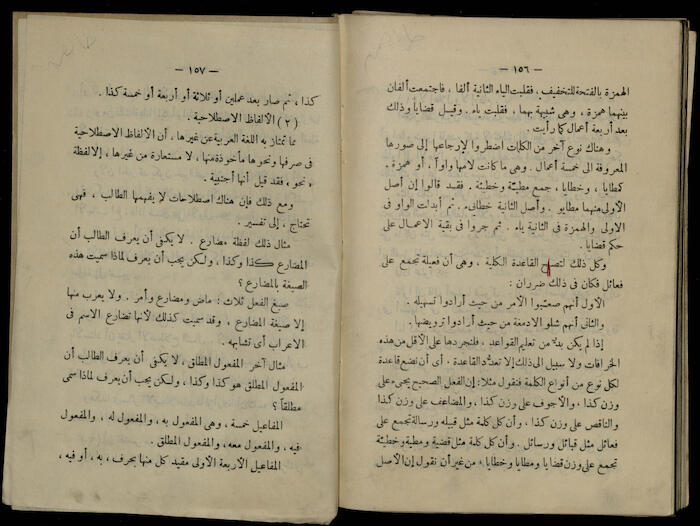 — ١٥٦ —
الهمزة بالفتحة للتخفيف. فقلبت الياء الثانية ألفا، فاجتمعت ألفان
بينهما همزة، وهى شبيهة بهما، فقلبت ياء. وقيل قضايا وذلك
بعد أربعة أعمال كما رأيت.
وهناك نوع آخر من الكلمات اضطروا لإرجاعها إلى صورها
المعروفة الى خمسة أعمال. وهى ما كانت لامها واواً، أو همزة.
كمطايا، وخطايا، جمع مطيّة وخطيئة. فقد قالوا إن أصل
الأولى منهما مطايو. وأصل الثانية خطايىء. ثم أبدلت الواو فى
الاولى والهمزة فى الثانية ياء. ثم جروا فى بقية الاعمال على
حكم قضايا.
وكل ذلك لتصح القاعدة الكلية، وهى أن فعيلة تجمع على
فعائل فكان فى ذلك ضرران:
الأول أنهم صعّبوا الأمر من حيث أرادوا تسهيله.
والثانى أنهم شلو الادمغة من حيث أرادوا ترويضها.
إذا لم يكن بدٌّ من تعليم القواعد، فلنجردها على الأقل من هذه
الخرافات ولا سبيل الى ذلك إلا تعدّد القاعدة. أى أن نضع قاعدة
لكل نوع من أنواع الكلمة فنقول مثلا: إن الفعل الصحيح يجىء على
وزن كذا، والأجوف على وزن كذا، والمضاعف على وزن كذا
والناقص على وزن كذا. وأن كل كلمة مثل قبيله ورسالة تجمع على
فعائل مثل قبائل ورسائل. وأن كل كلمة مثل قضية ومطية وخطيئة
تجمع على وزن قضايا ومطايا وخطايا، من غير أن نقول إن الأصل
— ١٥٧ —
كذا، ثم صار بعد عملين أو ثلاثة أو أربعة أو خمسة كذا.
(٢) الألفاظ الاصطلاحية.
مما تمتاز به اللغة العربية عن غيرها، أن الألفاظ الاصطلاحية
فى صرفها ونحوها مأخوذة منها، لا مستعارة من غيرها، إلا لفظة
«نحو، فقد قيل أنها أجنبية.
ومع ذلك فإن هناك اصطلاحات لا يفهمها الطالب، فهى
تحتاج، إلى تفسير.
مثال ذلك لفظة مضارع. لا يكفى أن يعرف الطالب أن
المضارع كذا وكذا، ولكن يجب أن يعرف لماذا سميت هذه
الصيغة بالمضارع؟
صيغ الفعل ثلاث: ماض ومضارع وأمر. ولا يعرب منها
إلا صيغة المضارع. وقد سميت كذلك لأنها تضارع الاسم فى
الاعراب أى تشابهه.
مثال آخر المفعول المطلق، لا يكفى أن يعرف الطالب أن
المفعول المطلق هو كذا وكذا، ولكن يجب أن يعرف لماذا سمى
مطلقاً؟
المفاعيل خمسة، وهى المفعول به، والمفعول له، والمفعول
فيه، والمفعول معه، والمفعول المطلق.
المفاعيل الأربعة الأولى مقيد كل منها بحرف، به، أو فيه،